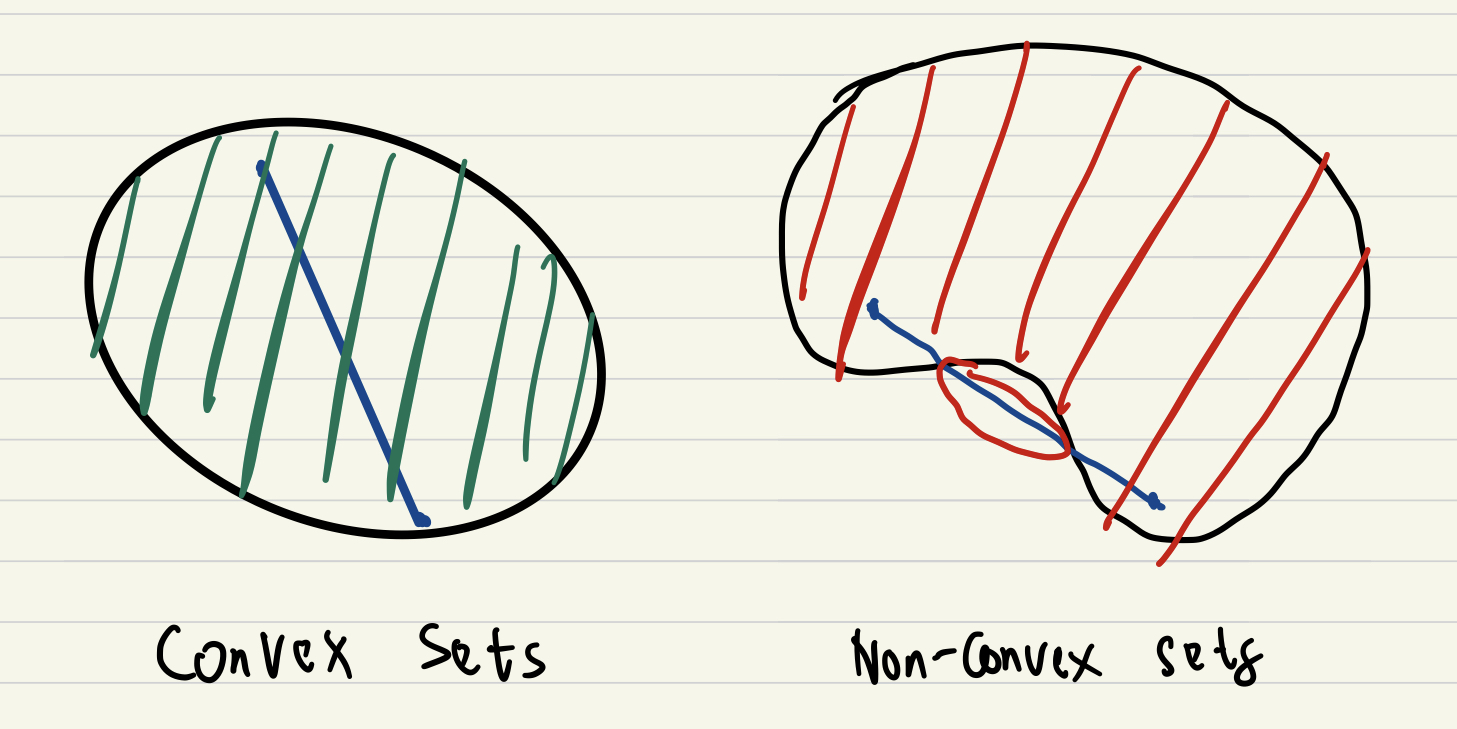 Convex Sets
Non-Convex sets